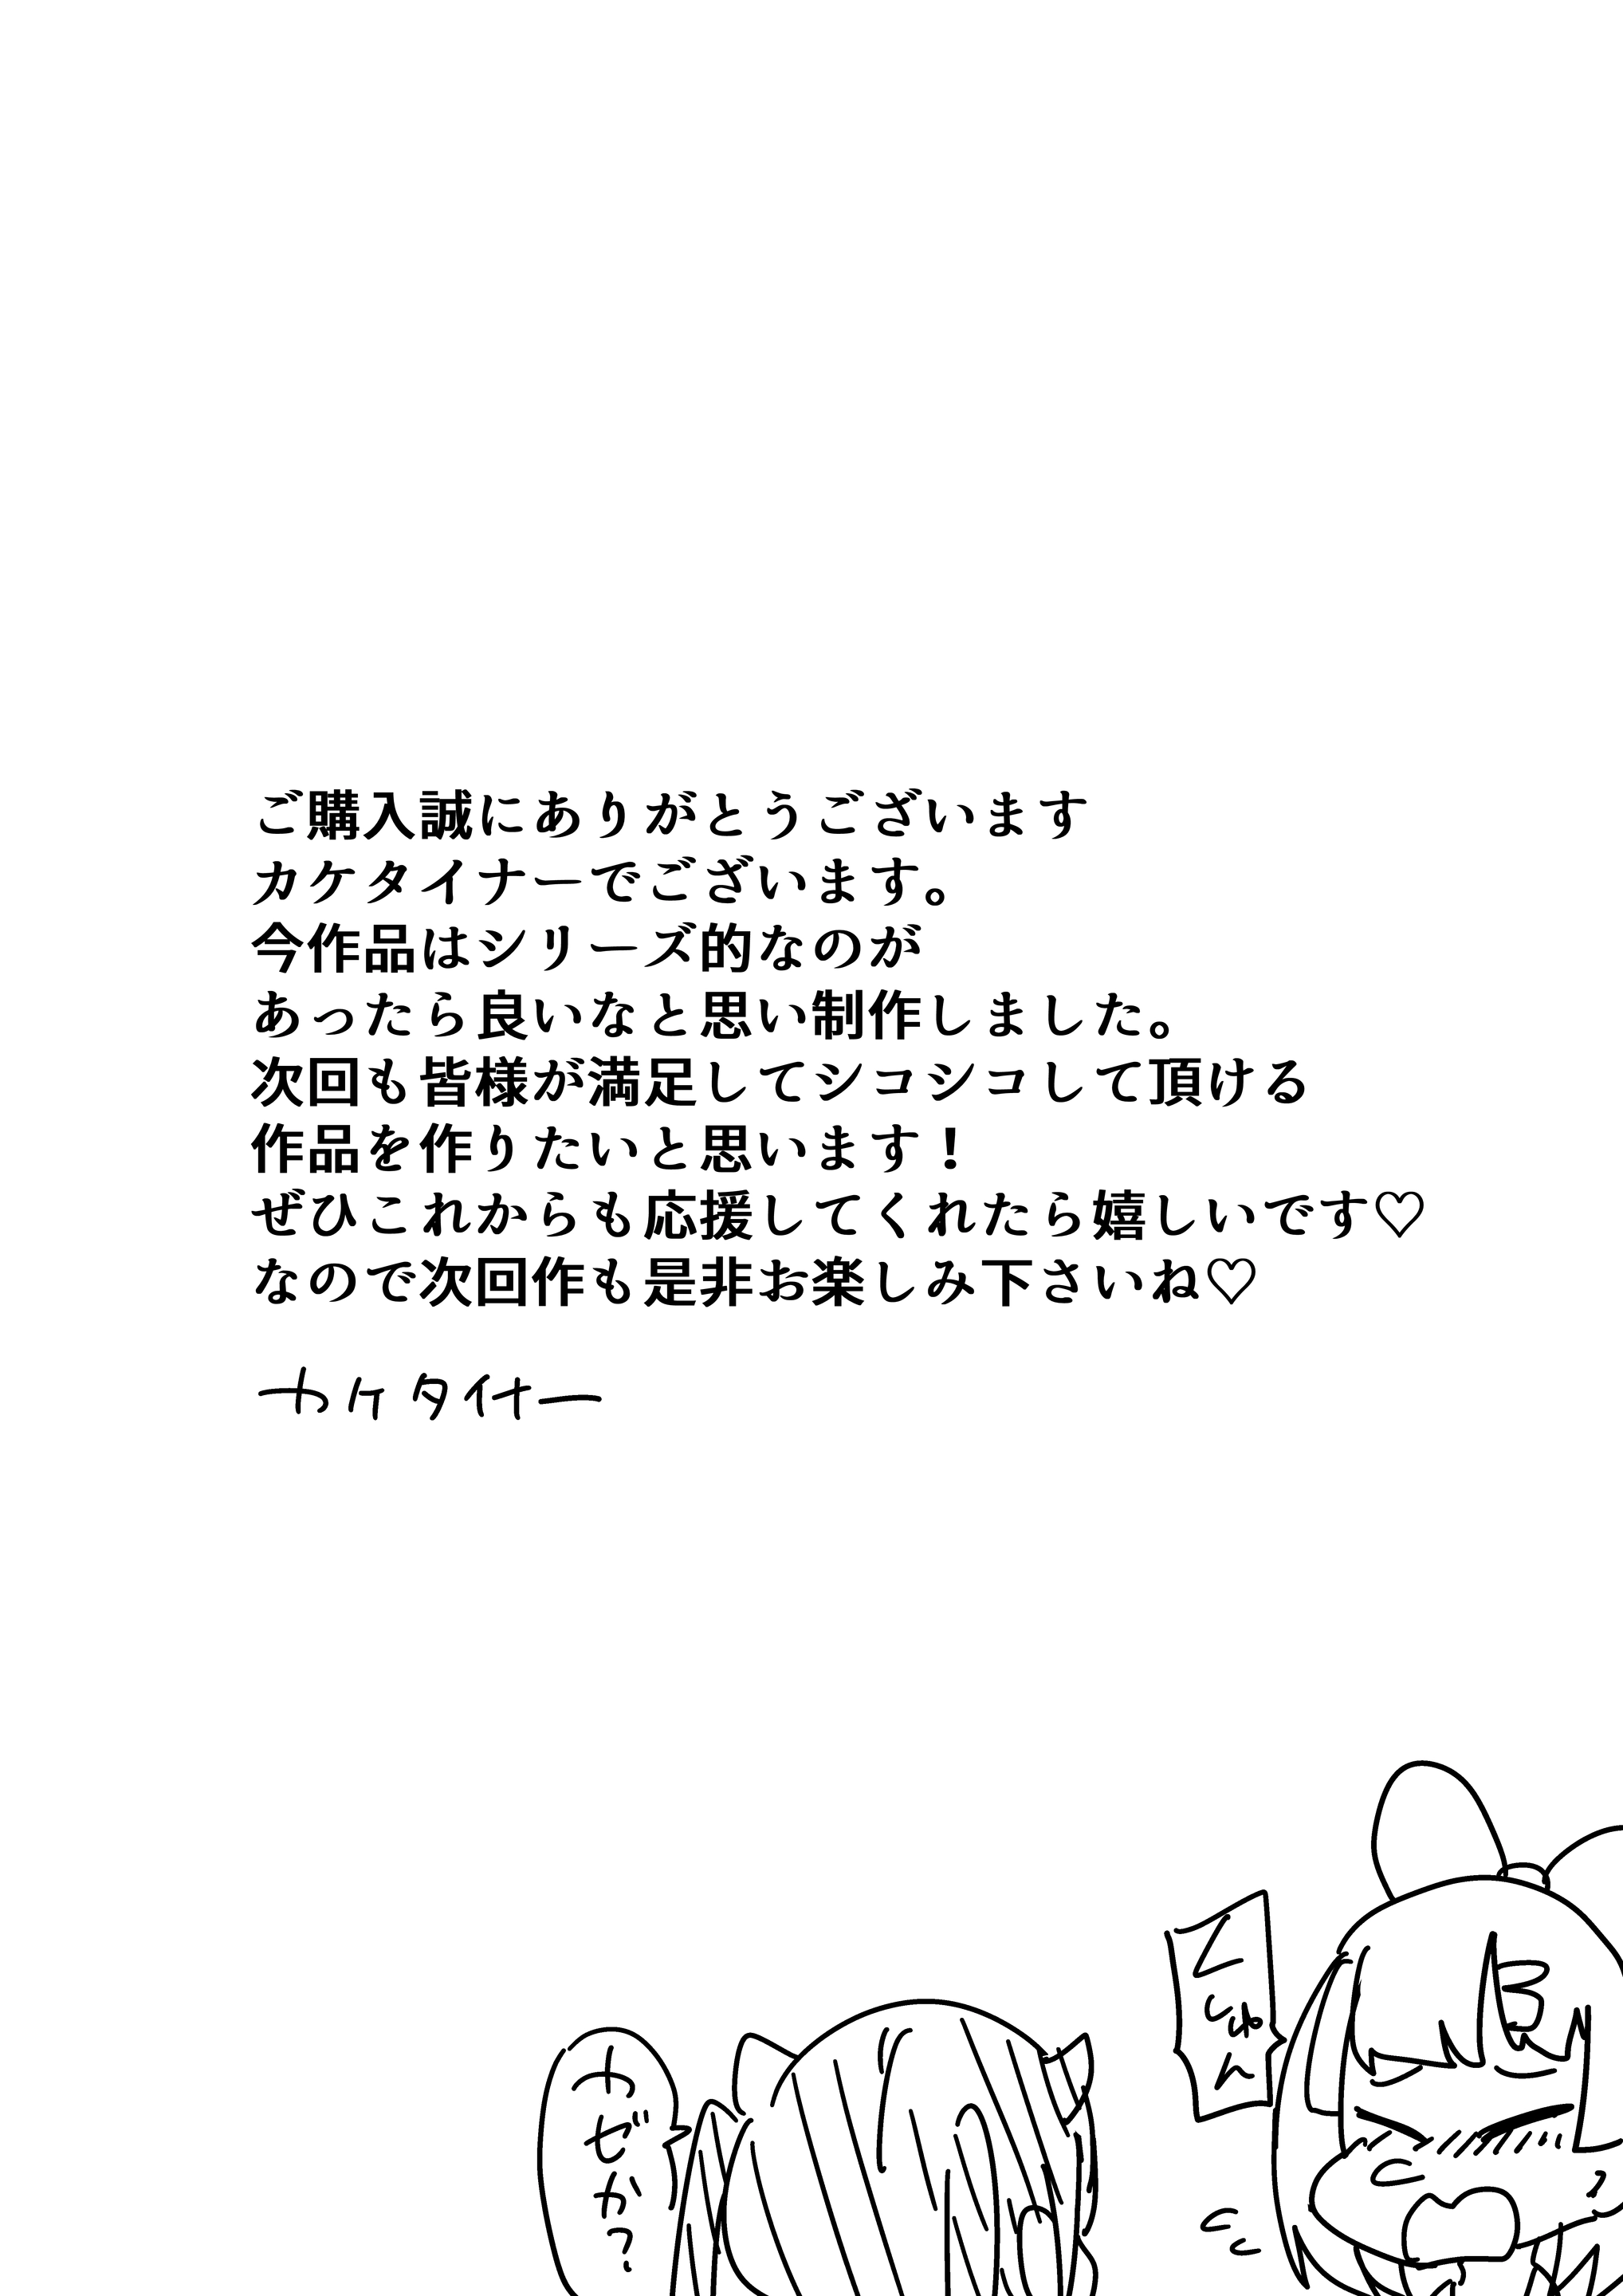 ご購入誠にありがとうございます
カケタイナーでございます。
今作品はシリーズ的なのが
あったら良いなと思い制作しました。
次回も皆様が満足してシコシコして頂ける
作品を作りたいと思います！
ぜひこれからも応援してくれたら嬉しいです♡
なので次回作も是非お楽しみ下さいね♡
カケタイナー
かぜか？